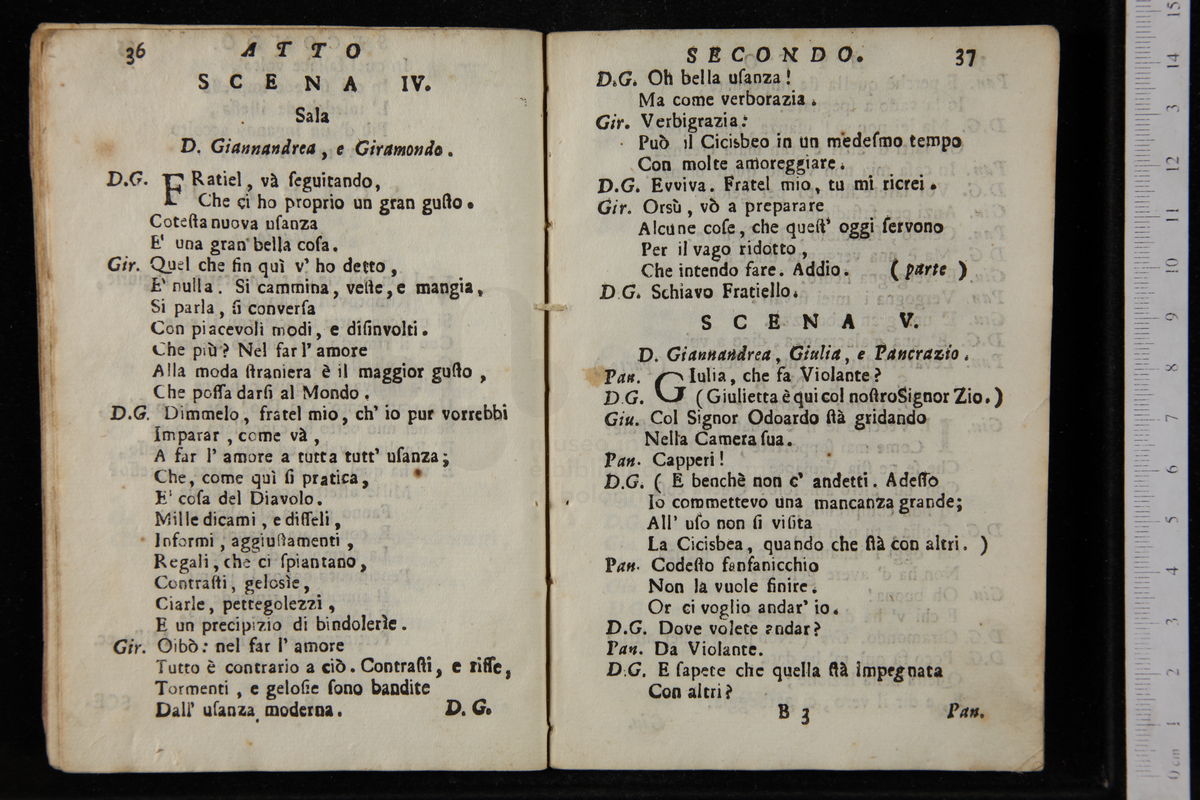 36 ATTO
SCENA IV.
Sala
D. Giannandrea, e Giramondo.
D.G. FRatiel, và ſeguitando,
Che ci ho proprio un gran guſto.
Coteſta nuova uſanza
E' una gran bella coſa.
Gir. Quel che fin quì v' ho detto,
E' nulla. Si cammina, veſte, e mangia,
Si parla, ſi converſa
Con piacevoli modi, e diſinvolti.
Che più? Nel far l' amore
Alla moda ſtraniera è il maggior guſto,
Che poſſa darſi al Mondo.
D.G. Dimmelo, fratel mio, ch' io pur vorrebbi
Imparar, come và,
A far l' amore a tutta tutt' uſanza;
Che, come quì ſi pratica,
E' coſa del Diavolo.
Mille dicami, e diſſeli,
Informi, aggiuſtamenti,
Regali, che ci ſpiantano,
Contraſti, geloſìe,
Ciarle, pettegolezzi,
E un precipizio di bindolerìe.
Gir. Oibò: nel far l' amore
Tutto è contrario a ciò. Contraſti, e riſſe,
Tormenti, e geloſie ſono bandite
Dall' uſanza moderna. D. G.
SECONDO. 37
D.G. Oh bella uſanza!
Ma come verborazia.
Gir. Verbigrazia:
Può il Cicisbeo in un medeſmo tempo
Con molte amoreggiare.
D.G. Evviva. Fratel mio, tu mi ricrei.
Gir. Orsù, vò a preparare
Alcune coſe, che queſt' oggi ſervono
Per il vago ridotto,
Che intendo fare. Addio. (parte)
D.G. Schiavo Fratiello.
SCENA V.
D. Giannandrea, Giulia, e Pancrazio.
Pan. GIulia, che fa Violante?
D.G. (Giulietta è qui col noſtro Signor Zio.)
Giu. Col Signor Odoardo ſtà gridando
Nella Camera ſua.
Pan. Capperi!
D.G. (E benchè non c' andetti. Adeſſo
Io commettevo una mancanza grande;
All' uſo non ſi viſita
La Cicisbea, quando che ſtà con altri.)
Pan. Codeſto fanfanicchio
Non la vuole finire.
Or ci voglio andar' io.
D.G. Dove volete andar?
Pan. Da Violante.
D.G. E ſapete che quella ſtà impegnata
Con altri?
B 3 Pan.
15
14
13
12
11
10
9
8
7
6
5
4
3
2
1
0 cm